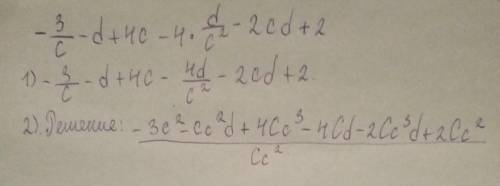 -3/c - d + 4c - 4 · d/c² - 2cd + 2
1) -3/c - d + 4c - 4d/c² - 2cd + 2.
2). Решение: (-3c² - Cc²d + 4Cc³ - 4Cd - 2Cc³d + 2Cc²)/Cc²